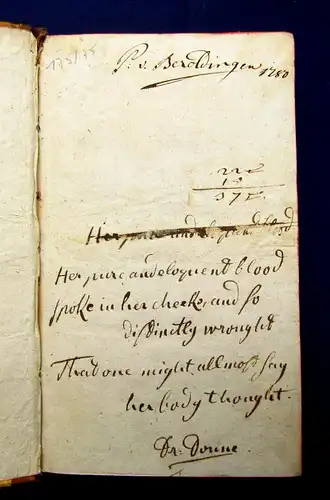 P. v. Beroldingen 1780
Her pure and eloquent blood
Her pure and eloquent blood
spoke in her cheeks, and so
distinctly wrought
That one might allmost say
her body thought.
Dr: Donne